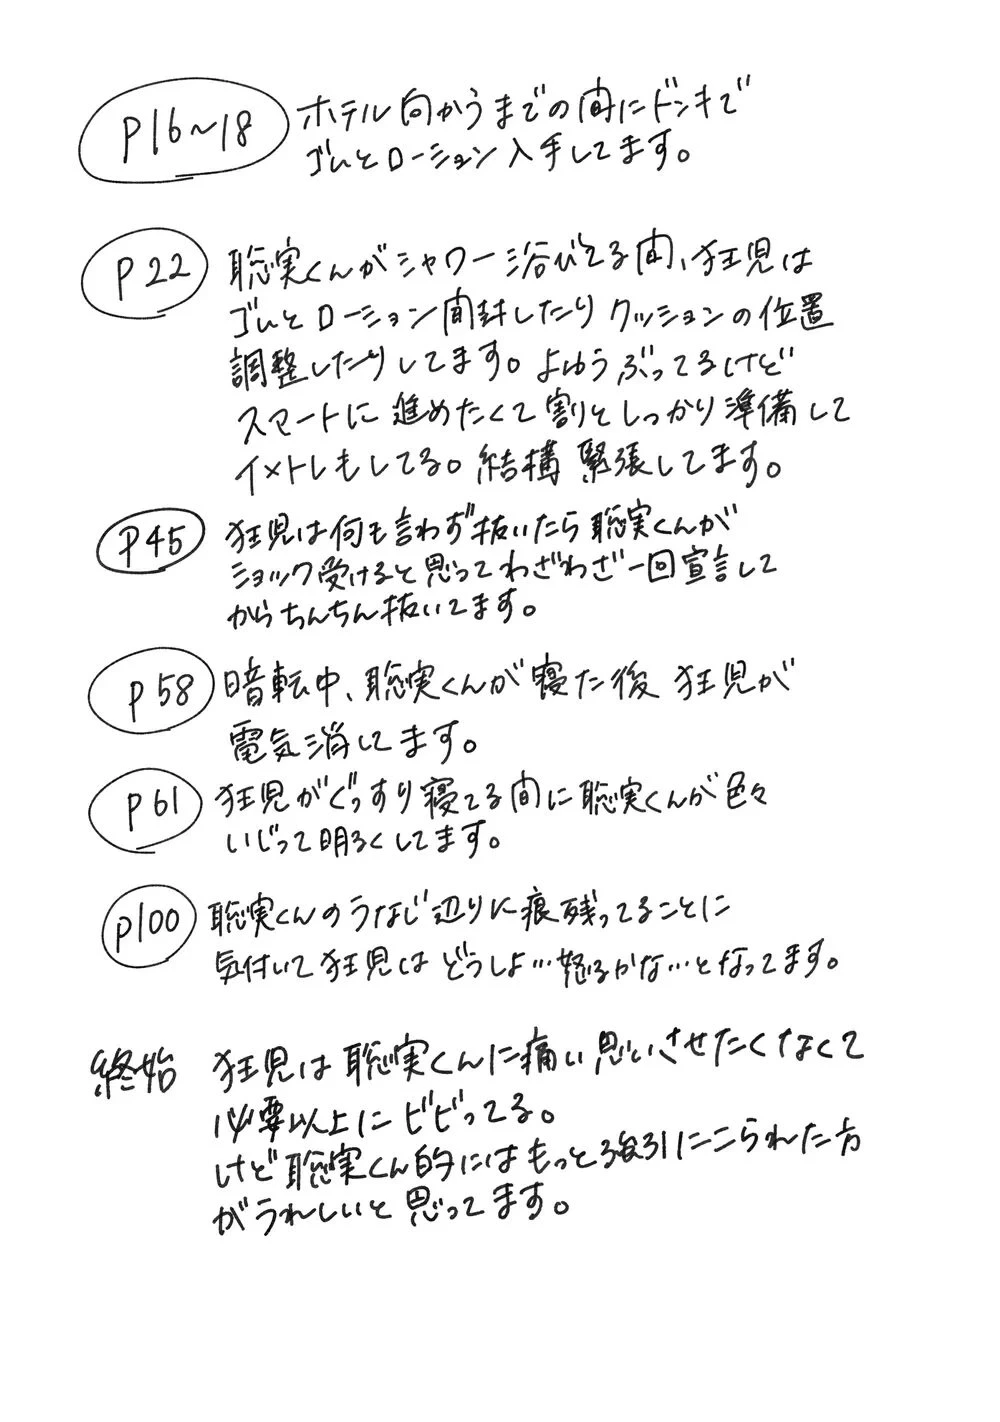 P16~18 ホテル向かうまでの間にドンキで
ゴムとローション入手してます。
P22 聡実くんがシャワー浴びてる間、狂児は
ゴムとローション開封したりクッションの位置
調整したりしてます。よゆうぶってるけど
スマートに進めたくて割としっかり準備して
イメトレもしてる。結構緊張してます。
P45 狂児は何も言わず抜いたら聡実くんが
ショック受けると思ってわざわざ一回宣言して
からちんちん抜いてます。
P58 暗転中、聡実くんが寝た後狂児が
電気消してます。
P61 狂児がぐっすり寝てる間に聡実くんが色々
いじって明るくしてます。
P100 聡実くんのうなじ辺りに痕残ってることに
気付いて狂児はどうしよ…怒るかな…となってます。
終始 狂児は聡実くんに痛い思いさせたくなくて
必要以上にビビってる。
けど聡実くん的にはもっと強引にこられた方
がうれしいと思ってます。